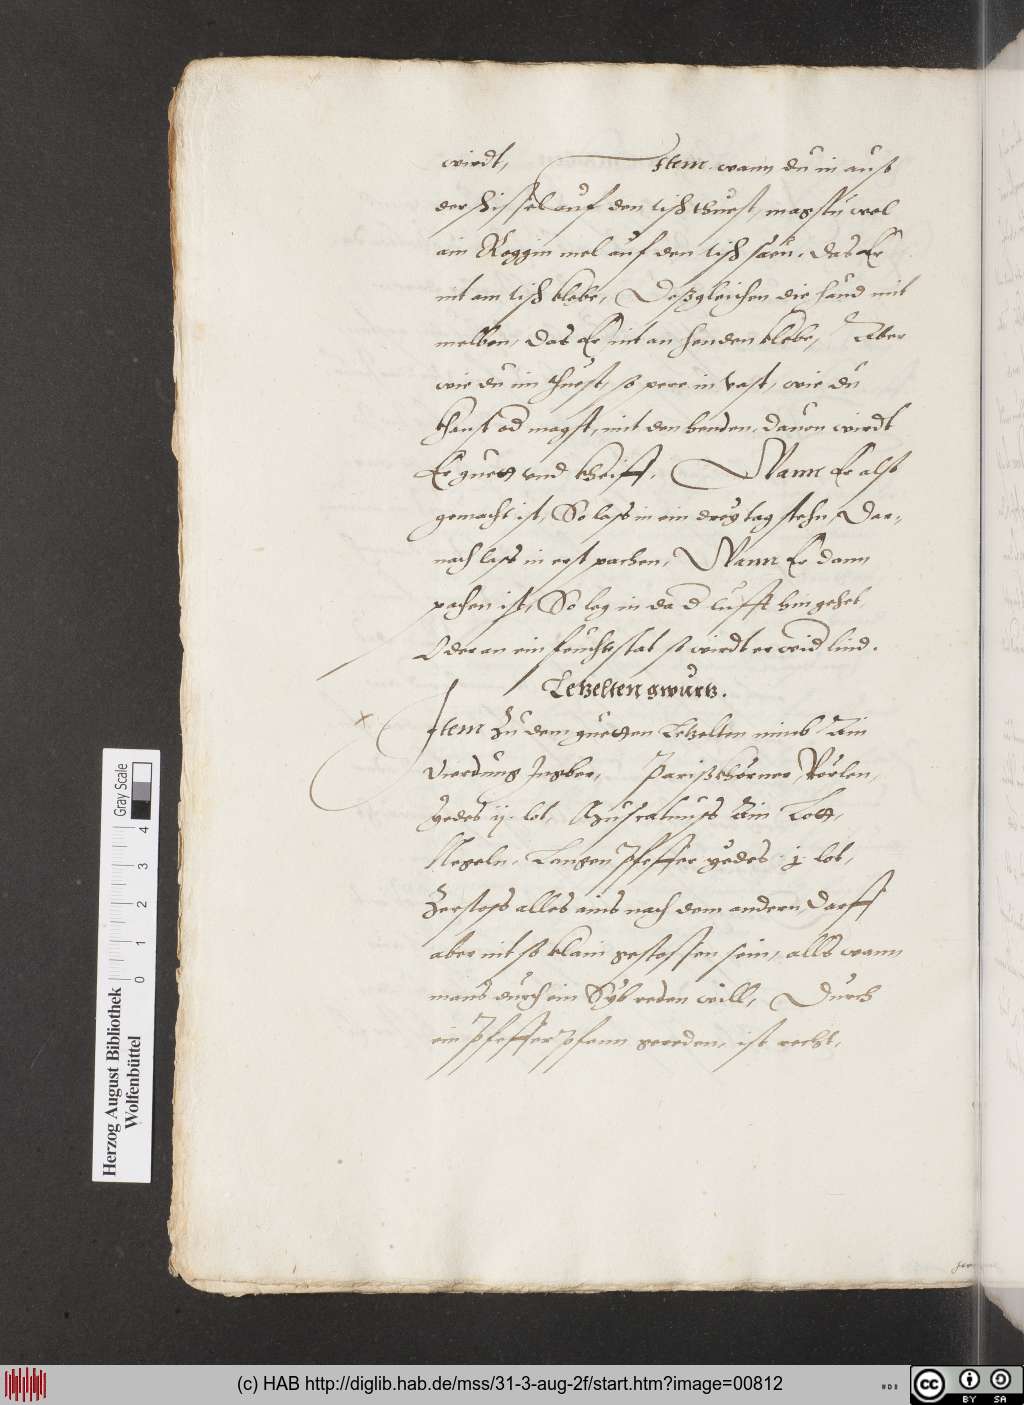 wirdt, Item wann du in auß
der schissel auf den tisch thuest, magstu wol
ain Roggin mel auf den tisch säen, das Er
nit am tisch klebe, Deßgleichen die hand mit
melben, das Er nit an henden klebe, Aber
wie du im thuest, so pere in vast, wie du
khanst od magst, mit den henden, dauon wirdt
Er guett vnd kheiff, Wann Er alßo
gemacht ist, So lass in ein drey tag stehn, Dar-
nach lass in erst pachen, Wann Er dann
pachen ist, So leg in da d lufft hin gehet
Oder an ein feuchtestat so wirdt er wid lind.
Letzelten gwurtz.
Item Zu dem guetten Letzelten nimb Ain
vierdung Ingber, Parißkhörner Rörlen,
yedes ij. lot, Muscatnuss Ain Lott,
Negeln, Langen Pfeffer yedes .j. lot,
Zerstoss alles ains nach dem andern, Darff
aber nit so klain gestossen sein, alls wann
mans durch ein Syb reden will, Durch
ein Pfeffer Pfann gereden, ist recht,
Herzog August Bibliothek
Wolfenbüttel
Gray Scale
0 1 2 3 4
(c) HAB http://diglib.hab.de/mss/31-3-aug-2f/start.htm?image=00812
cc BY SA